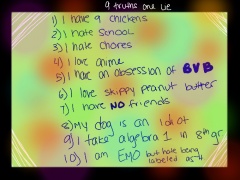 9 truths one lie
1) I have 9 chickens
2) I hate SCHOOL
3) I hate chores
4) I love anime
5) I have an obsession of BVB
6) I love skippy peanut butter
7) I have NO friends
8) My dog is an idiot
9) I take algebra 1 in 8th gr
10) I am EMO but hate being
labeled as it